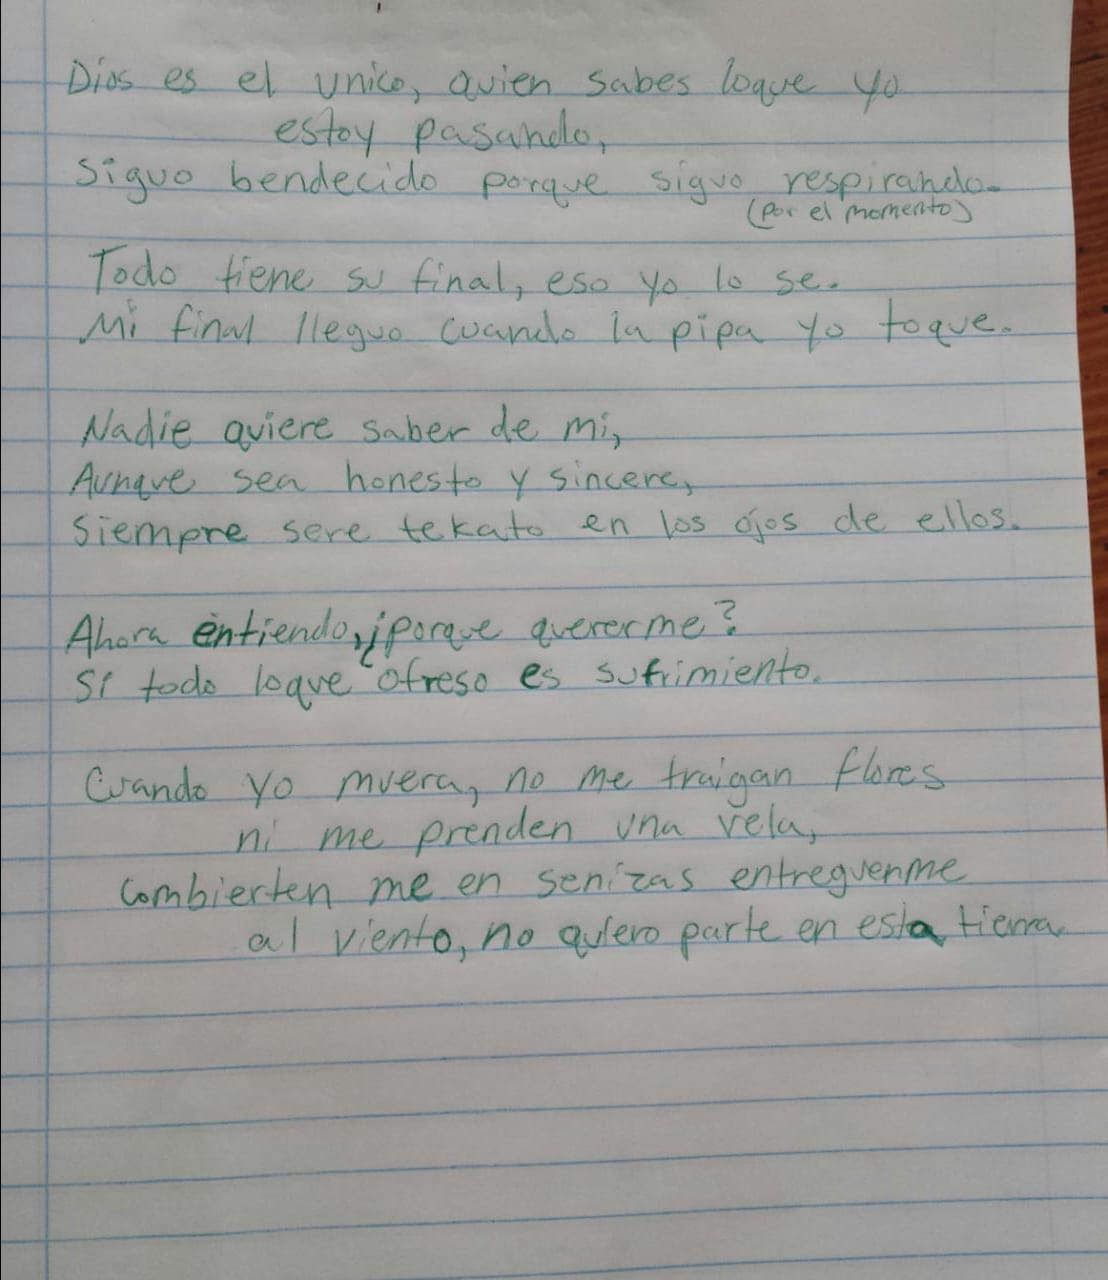 Dios es el unico, quien sabes loque yo
estoy pasando,
Siguo bendecido porque siguo respirando.
(por el momento)
Todo tiene su final, eso yo lo se.
Mi final lleguo cuando la pipa yo toque.
Nadie quiere saber de mi,
Aunque sea honesto y sincero,
Siempre sere tekato en los ojos de ellos.
Ahora entiendo, ¿porque quererme?
Si todo loque ofreso es sufrimiento.
Cuando yo muera, no me traigan flores
ni me prenden una vela,
Combierten me en senizas entreguenme
al viento, no quiero parte en esta tierra